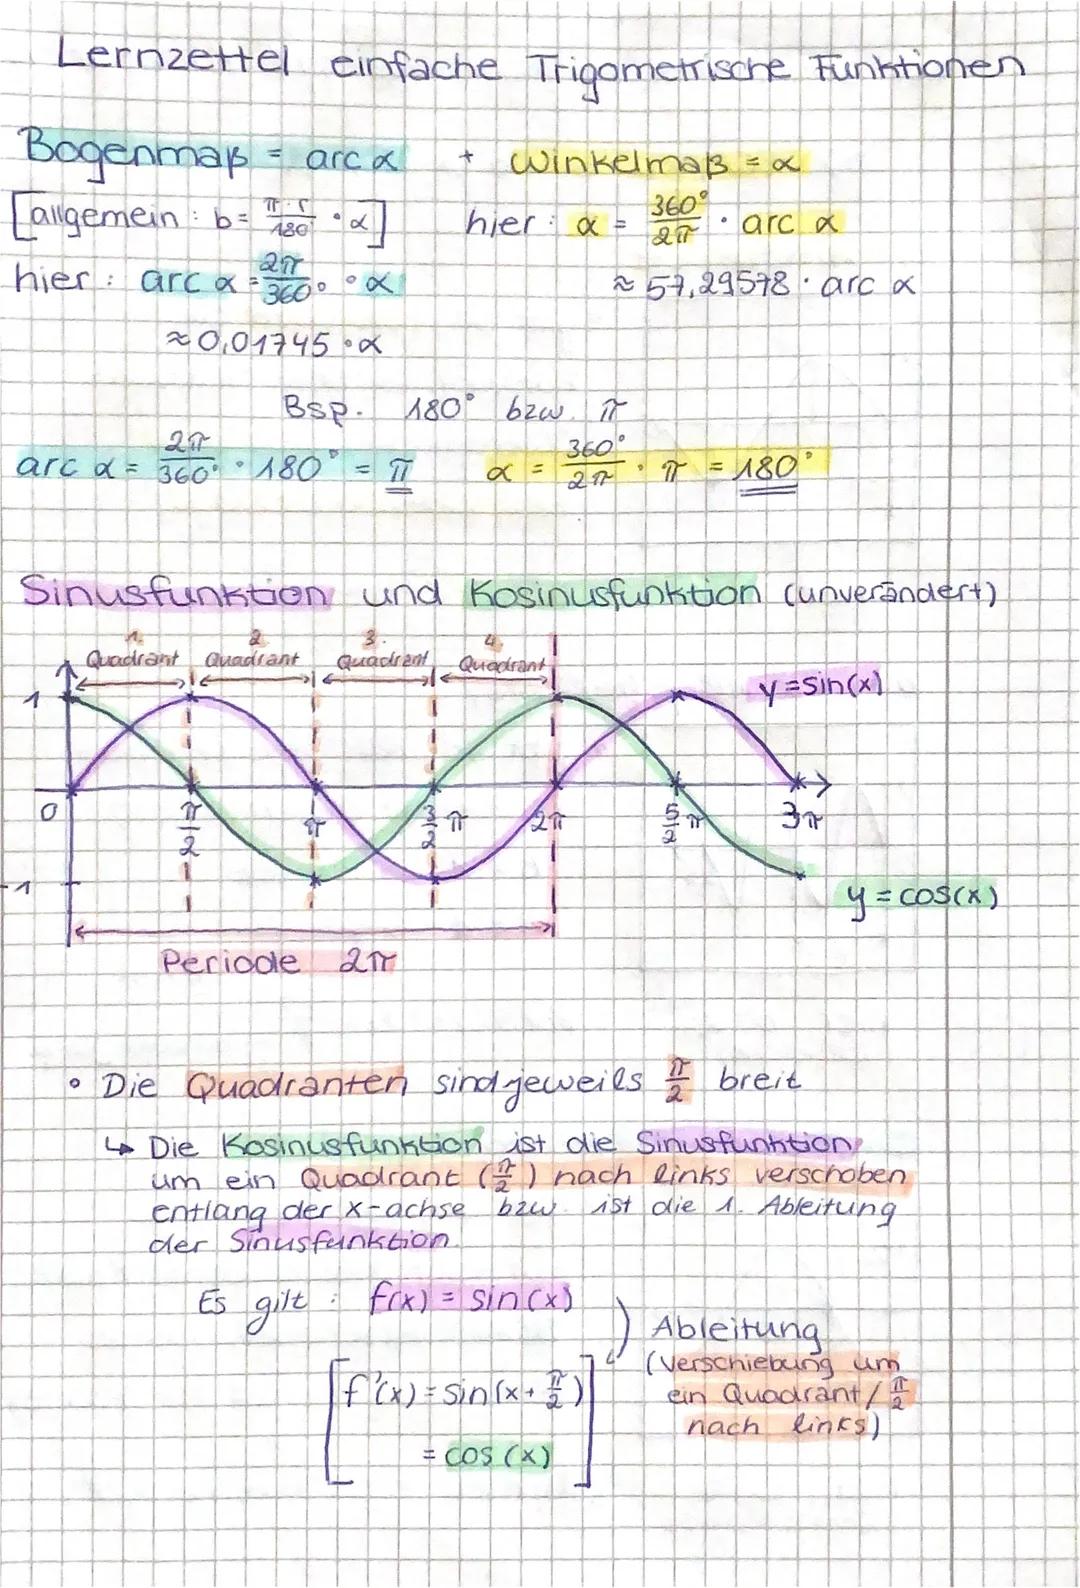 Lernzettel einfache Trigometrische Funktionen
Bogenmaß = arc α + Winkelmaß = α
[allgemein: b = π·r/180° · α] hier: α = 360°/2π · arc α
hier: arc α = 2π/360° · α ≈ 57,29578 · arc α
≈ 0,01745 · α
Bsp. 180° bzw. π
arc α = 2π/360° · 180° = π α = 360°/2π · π = 180°
Sinusfunktion und Kosinusfunktion (unverändert)
1. Quadrant 2. Quadrant 3. Quadrant 4. Quadrant
1 y=sin(x)
0 π/2 π 3/2 π 2π 5/2 π 3π
-1 y = cos(x)
Periode 2π
• Die Quadranten sind jeweils π/2 breit
↳ Die Kosinusfunktion ist die Sinusfunktion
um ein Quadrant (π/2) nach links verschoben
entlang der x-achse bzw. ist die 1. Ableitung
der Sinusfunktion
Es gilt: f(x) = sin(x)
Ableitung
(Verschiebung um
[f'(x) = sin(x + π/2) ein Quadrant / π/2
nach links)
= cos(x)]